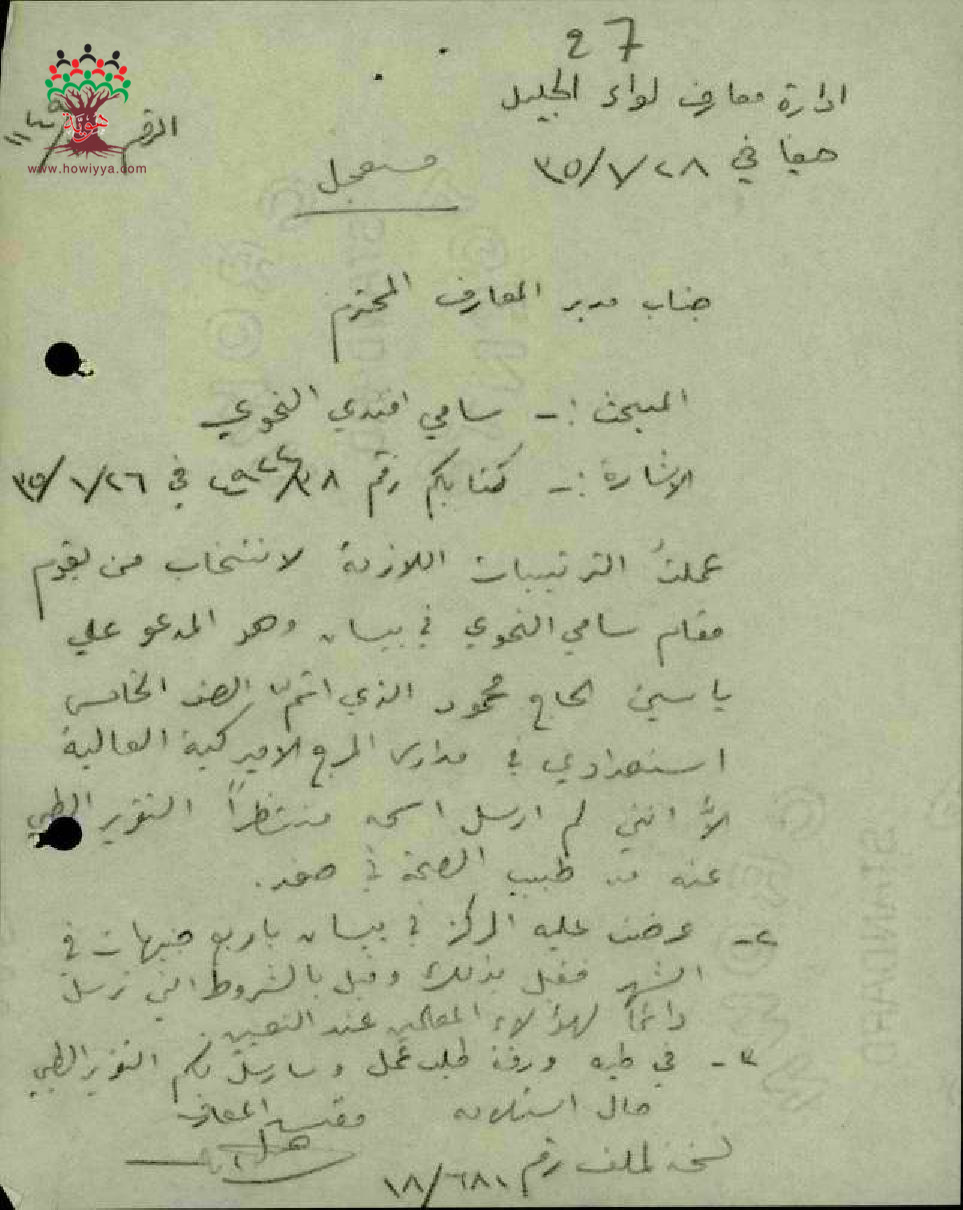 27
ادارة معارف لواء الجليل
الرقم
حيفا في ٢٨/١/٣٥
مستعجل
www.howiyya.com
جناب مدير المعارف المحترم
المبحث :- سامي افندي النحوي
الاشارة :- كتابكم رقم في ٢٦/١/٣٥
عملتُ الترتيبات اللازمة لانتخاب من يقوم
مقام سامي النحوي في بيسان وهو المدعو علي
ياسين الحاج محمود الذي اتمّ الصف الخامس
استعدادي في مدارس المرج الاميركية العالية
الاّ انني لم ارسل اسمه منتظراً التقرير الطبي
عنه من طبيب الصحة في صفد.
٢- عرضت عليه المركز في بيسان باربع جنيهات في
الشهر فقبل بذلك وقبل بالشروط التي ترسل
دائماً لهؤلاء المعلمين عند التعيين.
٣- في طيه ورقة طلب عمل وسارسل لكم التقرير الطبي
حال استلامه
مفتش المعارف
نسخة لملف رقم ١٨/٦٨١